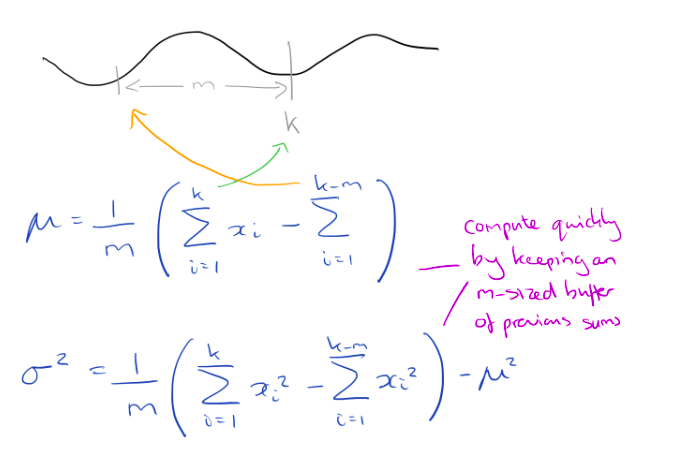 m
k
μ = 1/m ( ∑_{i=1}^{k} x_i − ∑_{i=1}^{k-m} )
compute quickly
by keeping an
m-sized buffer
of previous sums
σ² = 1/m ( ∑_{i=1}^{k} x_i² − ∑_{i=1}^{k-m} x_i² ) − μ²